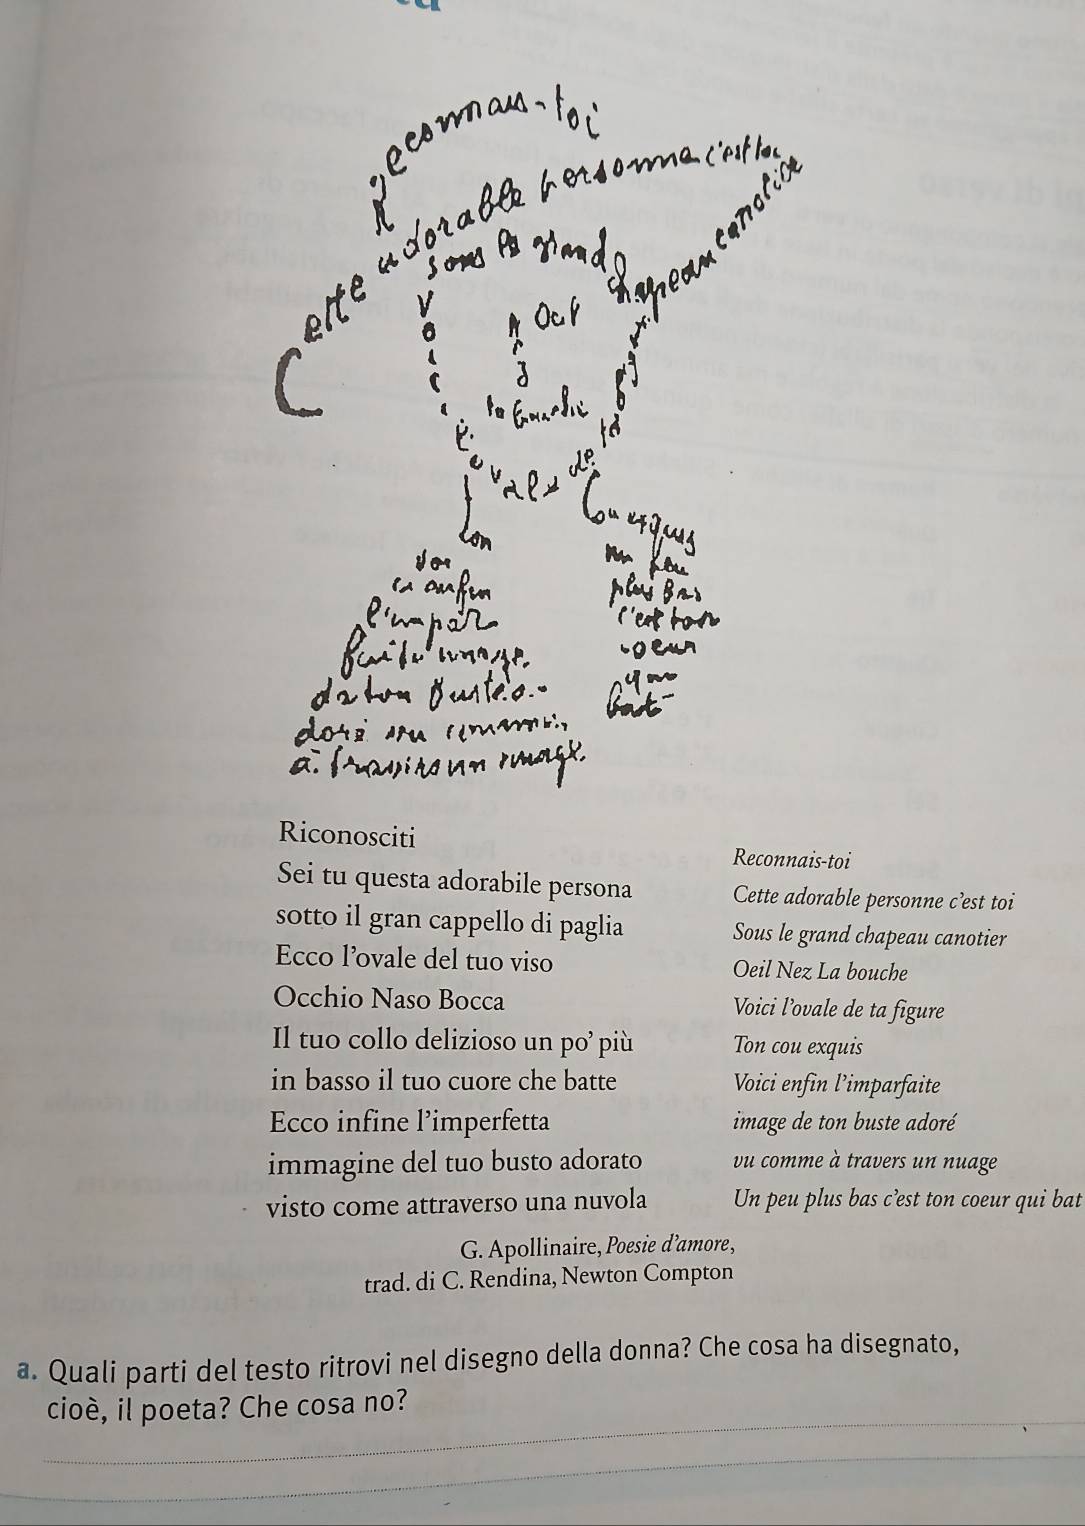 Reconnais-toi
Cette adorable personne c'est toi
Sous le grand chapeau canotier
Oeil
Nez
la bouche
Voici l'ovale de ta figure
Ton
Cou exquis
Voi
ci enfin
l'impar
faite image
de ton buste a
doré vu comme
à travers un nuage
un peu
plus bas
c'est ton
coeur
qui
bat
Riconosciti
Sei tu questa adorabile persona
sotto il gran cappello di paglia
Ecco l'ovale del tuo viso
Occhio Naso Bocca
Il tuo collo delizioso un po' più
in basso il tuo cuore che batte
Ecco infine l'imperfetta
immagine del tuo busto adorato
visto come attraverso una nuvola
Reconnais-toi
Cette adorable personne c'est toi
Sous le grand chapeau canotier
Oeil Nez La bouche
Voici l'ovale de ta figure
Ton cou exquis
Voici enfin l'imparfaite
image de ton buste adoré
vu comme à travers un nuage
Un peu plus bas c'est ton coeur qui bat
G. Apollinaire, Poesie d'amore,
trad. di C. Rendina, Newton Compton
a. Quali parti del testo ritrovi nel disegno della donna? Che cosa ha disegnato,
cioè, il poeta? Che cosa no?